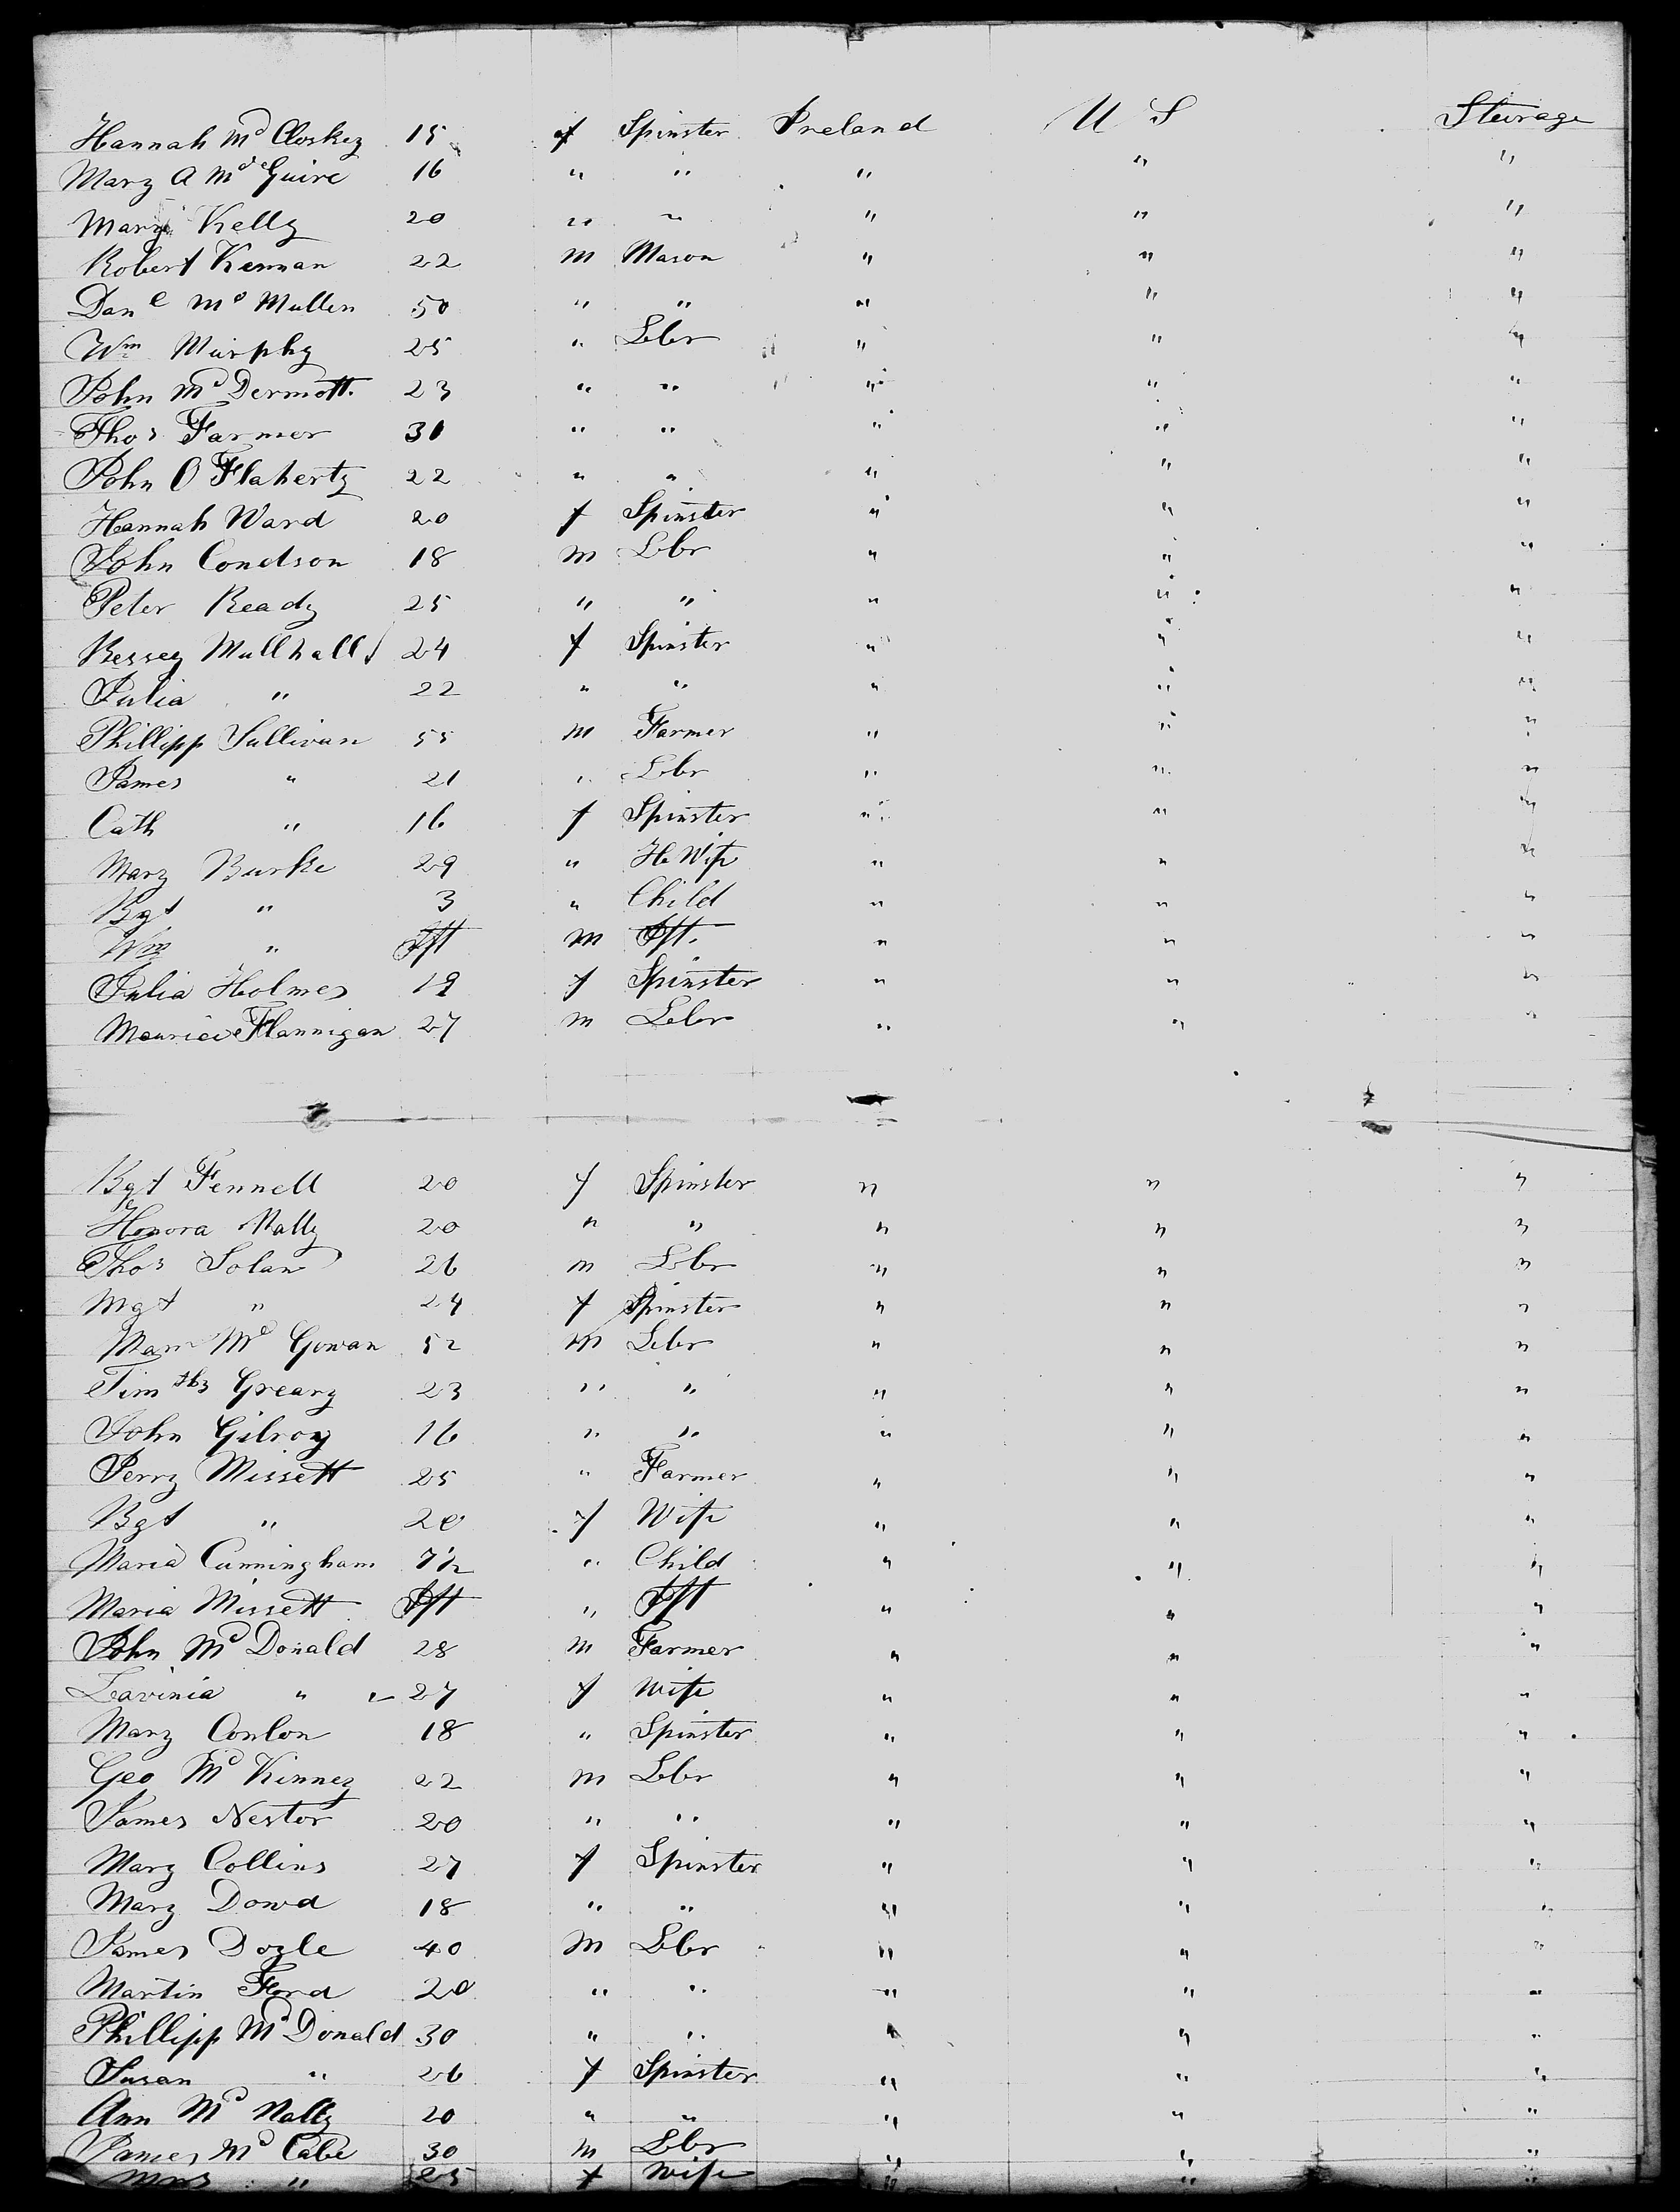 Hannah McCloskey 15 f Spinster Ireland U S Sterage
Mary A McGuire 16 " " " " "
Mary Kelly 20 " " " " "
Robert Kennan 22 m Mason " " "
Danl McMullen 50 " " " " "
Wm Murphy 25 " Lbr " " "
John McDermott 23 " " " " "
Thos Farmer 30 " " " " "
John O Flaherty 22 " " " " "
Hannah Ward 20 f Spinster " " "
John Condson 18 m Lbr " " "
Peter Ready 25 " " " " "
Bessey Mullhall 24 f Spinster " " "
Julia " 22 " " " " "
Phillipp Sullivan 55 m Farmer " " "
James " 21 " Lbr " " "
Cath " 16 f Spinster " " "
Mary Burke 29 " H Wife " " "
Bgt " 3 " Child " " "
Wm " Ift m Ift. " " "
Julia Holmes 19 f Spinster " " "
Maurice Flannigan 27 m Lbr " " "
Bgt Fennell 20 f Spinster " " "
Honora Nally 20 " " " " "
Thos Solan 26 m Lbr " " "
Mgt " 24 f Spinster " " "
McGowan 52 m Lbr " " "
Timthy Greary 23 " " " " "
John Gilroy 16 " " " " "
Perry Missett 25 " Farmer " " "
Bgt " 20 f Wife " " "
Maria Cunningham 7½ " Child " " "
Maria Missett Ift " Ift " " "
John McDonald 28 m Farmer " " "
Lavinia " 27 f Wife " " "
Mary Conlon 18 " Spinster " " "
Geo McKinney 22 m Lbr " " "
James Nestor 20 " " " " "
Mary Collins 27 f Spinster " " "
Mary Dowd 18 " " " " "
James Doyle 40 m Lbr " " "
Martin Ford 20 " " " " "
Phillipp McDonald 30 " " " " "
Susan " 26 f Spinster " " "
Ann McNally 20 " " " " "
James McCabe 30 m Lbr " " "
Mrs " 25 f Wife " " "